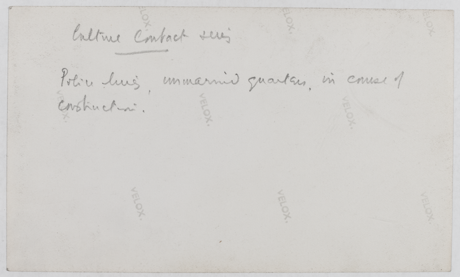 Culture Contact series
Police lines, unmarried quarters, in course of
construction.
VELOX.
VELOX.
VELOX.
VELOX.
VELOX.
VELOX.
VELOX.
VELOX.